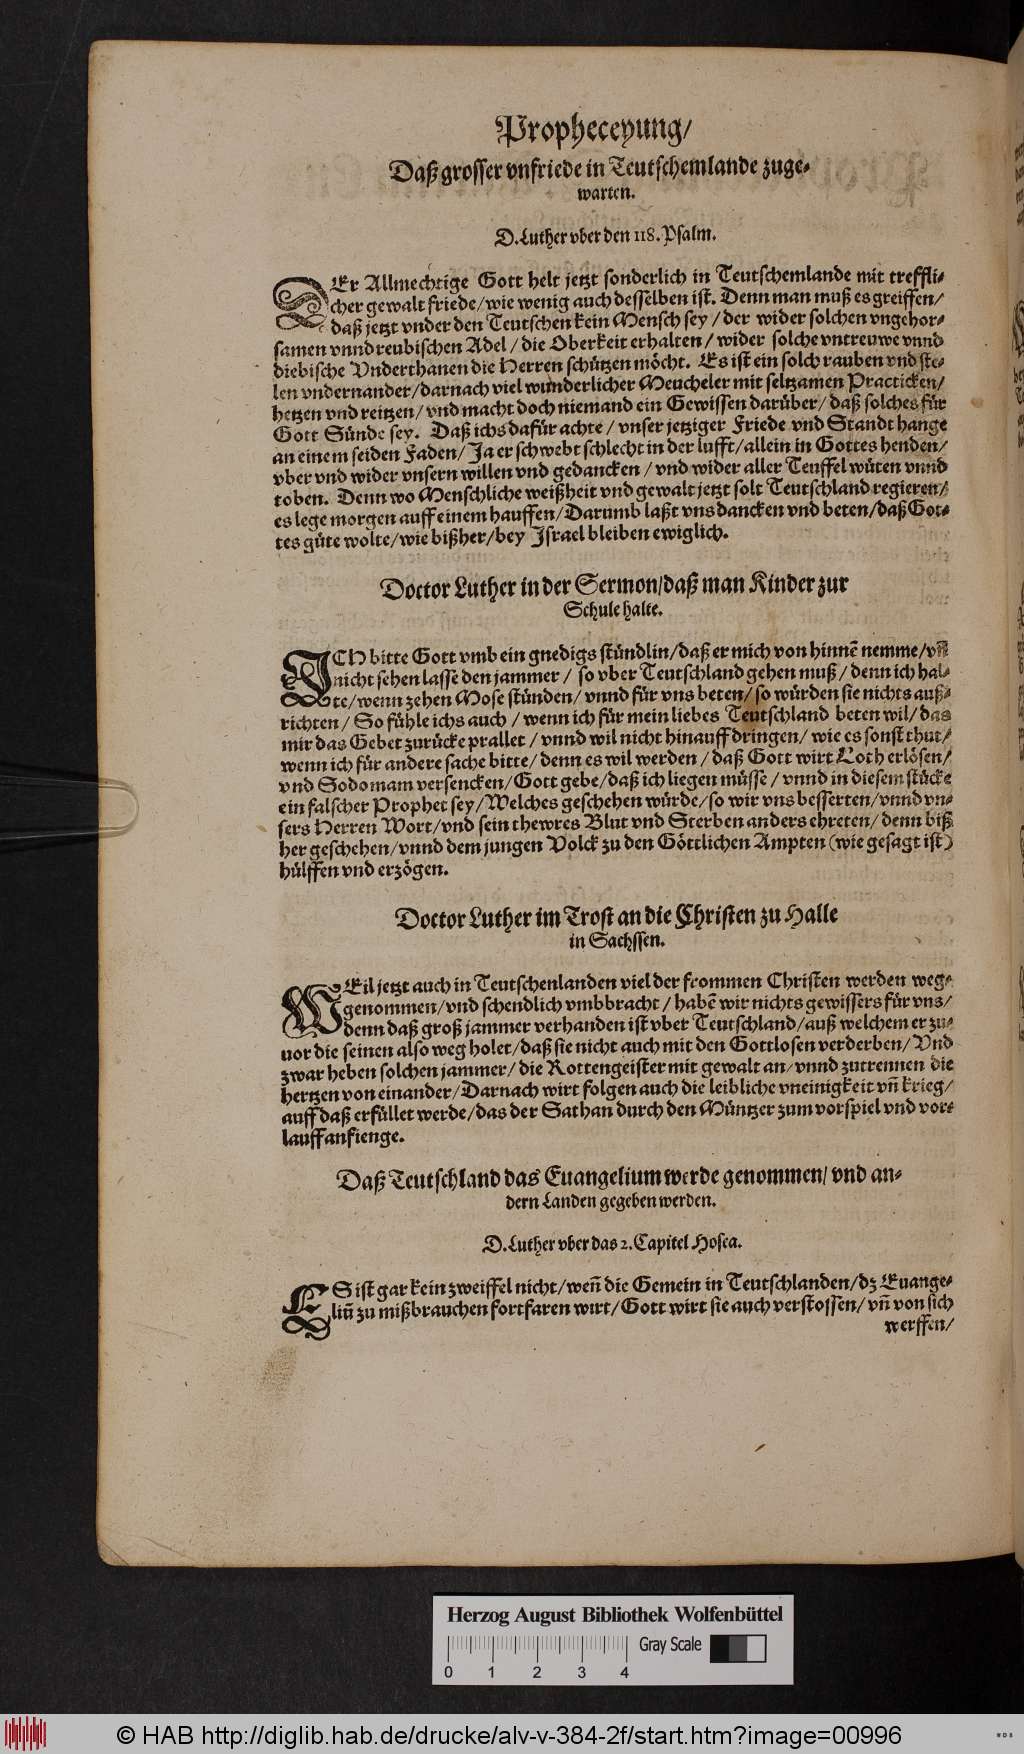 Propheceyung/
Daß grosser vnfriede in Teutschemlande zuge-
warten.
D. Luther vber den 118. Psalm.
DEr Allmechtige Gott helt jetzt sonderlich in Teutschemlande mit treffli-
cher gewalt friede/wie wenig auch desselben ist. Denn man muß es greiffen/
daß jetzt vnder den Teutschen kein Mensch sey/der wider solchen vngehor-
samen vnnd reubischen Adel/die Oberkeit erhalten/wider solche vntreuwe vnnd
diebische Vnderthanen die Herren schützen möcht. Es ist ein solch rauben vnd ste-
len vndernander/darnach viel wunderlicher Meucheler mit seltzamen Practicken/
hetzen vnd reitzen/vnd macht doch niemand ein Gewissen darüber/daß solches für
Gott Sünde sey. Daß ichs dafür achte/vnser jetziger Friede vnd Standt hange
an einem seiden Faden/Ja er schwebt schlecht in der lufft/allein in Gottes henden/
vber vnd wider vnsern willen vnd gedancken/vnd wider aller Teuffel wüten vnnd
toben. Denn wo Menschliche weißheit vnd gewalt jetzt solt Teutschland regieren/
es lege morgen auff einem hauffen/Darumb laßt vns dancken vnd beten/daß Got-
tes güte wolte/wie bißher/bey Israel bleiben ewiglich.
Doctor Luther in der Sermon/daß man Kinder zur
Schule halte.
ICH bitte Gott vmb ein gnedigs stündlin/daß er mich von hinnē nemme/vn̄
nicht sehen lasse den jammer/so vber Teutschland gehen muß/denn ich hal-
te/wenn zehen Mose stünden/vnnd für vns beten/so würden sie nichts auß-
richten/So fühle ichs auch/wenn ich für mein liebes Teutschland beten wil/das
mir das Gebet zurücke prallet/vnnd wil nicht hinauff dringen/wie es sonst thut/
wenn ich für andere sache bitte/denn es wil werden/daß Gott wirt Loth erlösen/
vnd Sodomam versencken/Gott gebe/daß ich liegen müsse/vnnd in diesem stücke
ein falscher Prophet sey/Welches geschehen würde/so wir vns besserten/vnnd vn-
sers Herren Wort/vnd sein thewres Blut vnd Sterben anders ehreten/denn biß
her geschehen/vnnd dem jungen Volck zu den Göttlichen Ampten (wie gesagt ist)
hülffen vnd erzögen.
Doctor Luther im Trost an die Christen zu Halle
in Sachssen.
WEil jetzt auch in Teutschenlanden viel der frommen Christen werden weg-
genommen/vnd schendlich vmbbracht/habē wir nichts gewissers für vns/
denn daß groß jammer verhanden ist vber Teutschland/auß welchem er zu-
uor die seinen also weg holet/daß sie nicht auch mit den Gottlosen verderben/Vnd
zwar heben solchen jammer/die Rottengeister mit gewalt an/vnnd zutrennen die
hertzen von einander/Darnach wirt folgen auch die leibliche vneinigkeit vn̄ krieg/
auff daß erfüllet werde/das der Sathan durch den Müntzer zum vorspiel vnd vor-
lauff anfienge.
Daß Teutschland das Euangelium werde genommen/vnd an-
dern Landen gegeben werden.
D. Luther vber das 2. Capitel Hosea.
ES ist gar kein zweiffel nicht/wen̄ die Gemein in Teutschlanden/dz Euange-
liū zu mißbrauchen fortfaren wirt/Gott wirt sie auch verstossen/vn̄ von sich
werffen/
Herzog August Bibliothek Wolfenbüttel
Gray Scale
0 1 2 3 4
© HAB http://diglib.hab.de/drucke/alv-v-384-2f/start.htm?image=00996